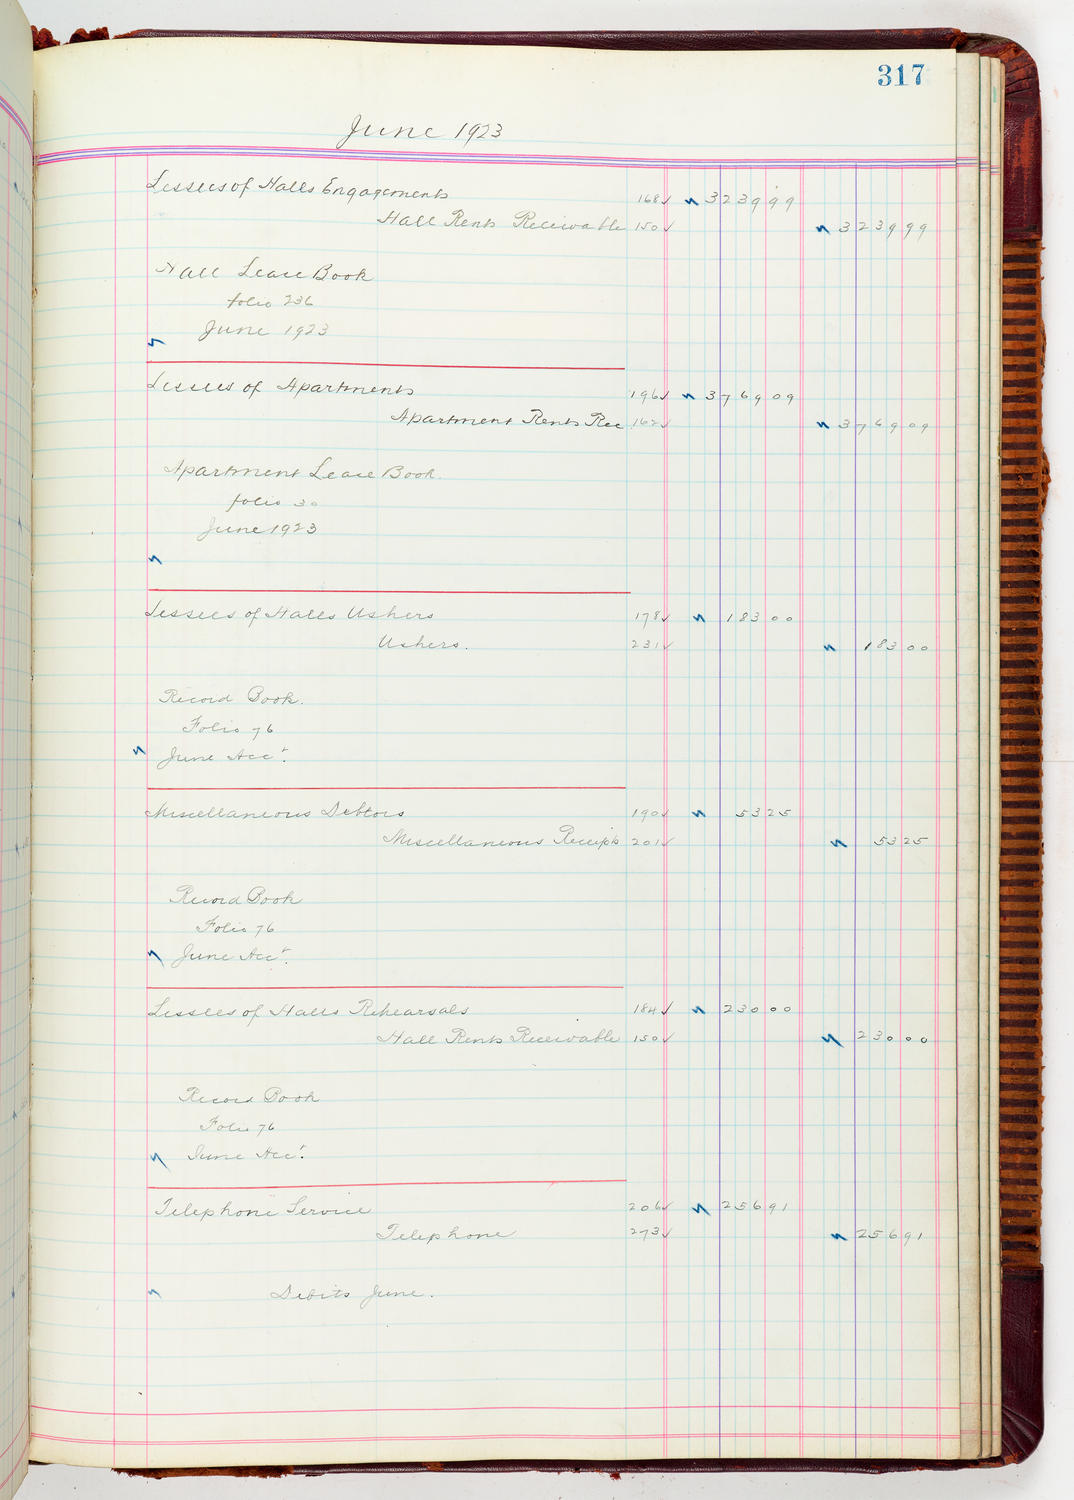 317
June 1923
Lessees of Halls Engagements 168 ✓ 3239 99
Hall Rents Receivable 150 ✓ 3239 99
Hall Lease Book
folio 236
June 1923
Lessees of Apartments 196 ✓ 3769 09
Apartment Rents Rec 162 ✓ 3769 09
Apartment Lease Book.
folio 30
June 1923
Lessees of Halls Ushers 178 ✓ 183 00
Ushers. 231 ✓ 183 00
Record Book.
Folio 76
June Acct.
Miscellaneous Debtors 190 ✓ 53 25
Miscellaneous Receipts 201 ✓ 53 25
Record Book
Folio 76
June Acct.
Lessees of Halls Rehearsals 184 ✓ 230 00
Hall Rents Receivable 150 ✓ 230 00
Record Book
Folio 76
June Acct.
Telephone Service 206 ✓ 256 91
Telephone 273 ✓ 256 91
Debits June.